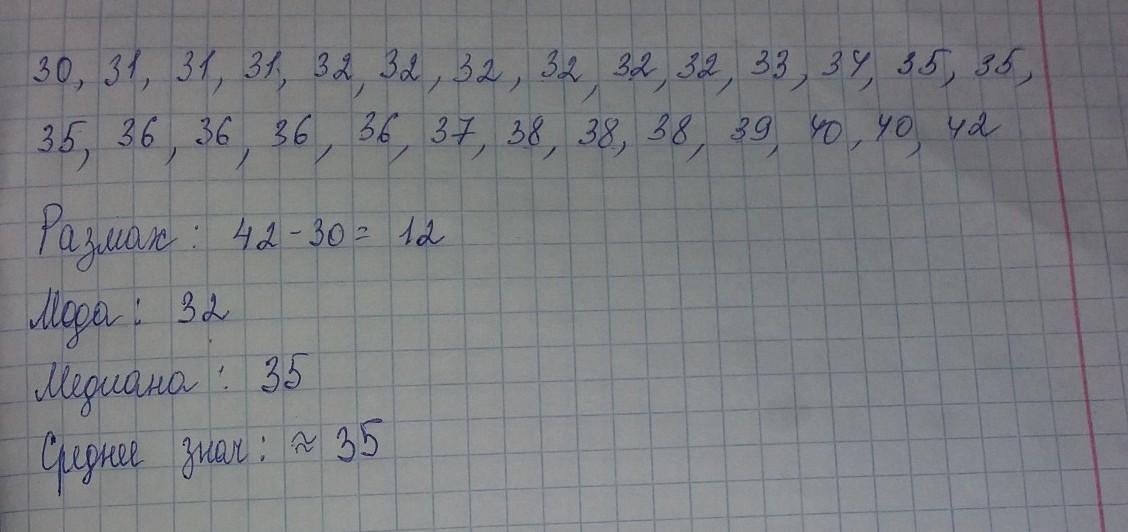 30, 31, 31, 31, 32, 32, 32, 32, 32, 32, 33, 34, 35, 35,
35, 36, 36, 36, 36, 37, 38, 38, 38, 39, 40, 40, 42
Размах: 42-30= 12
Мода: 32
Медиана: 35
Среднее знач: ≈ 35